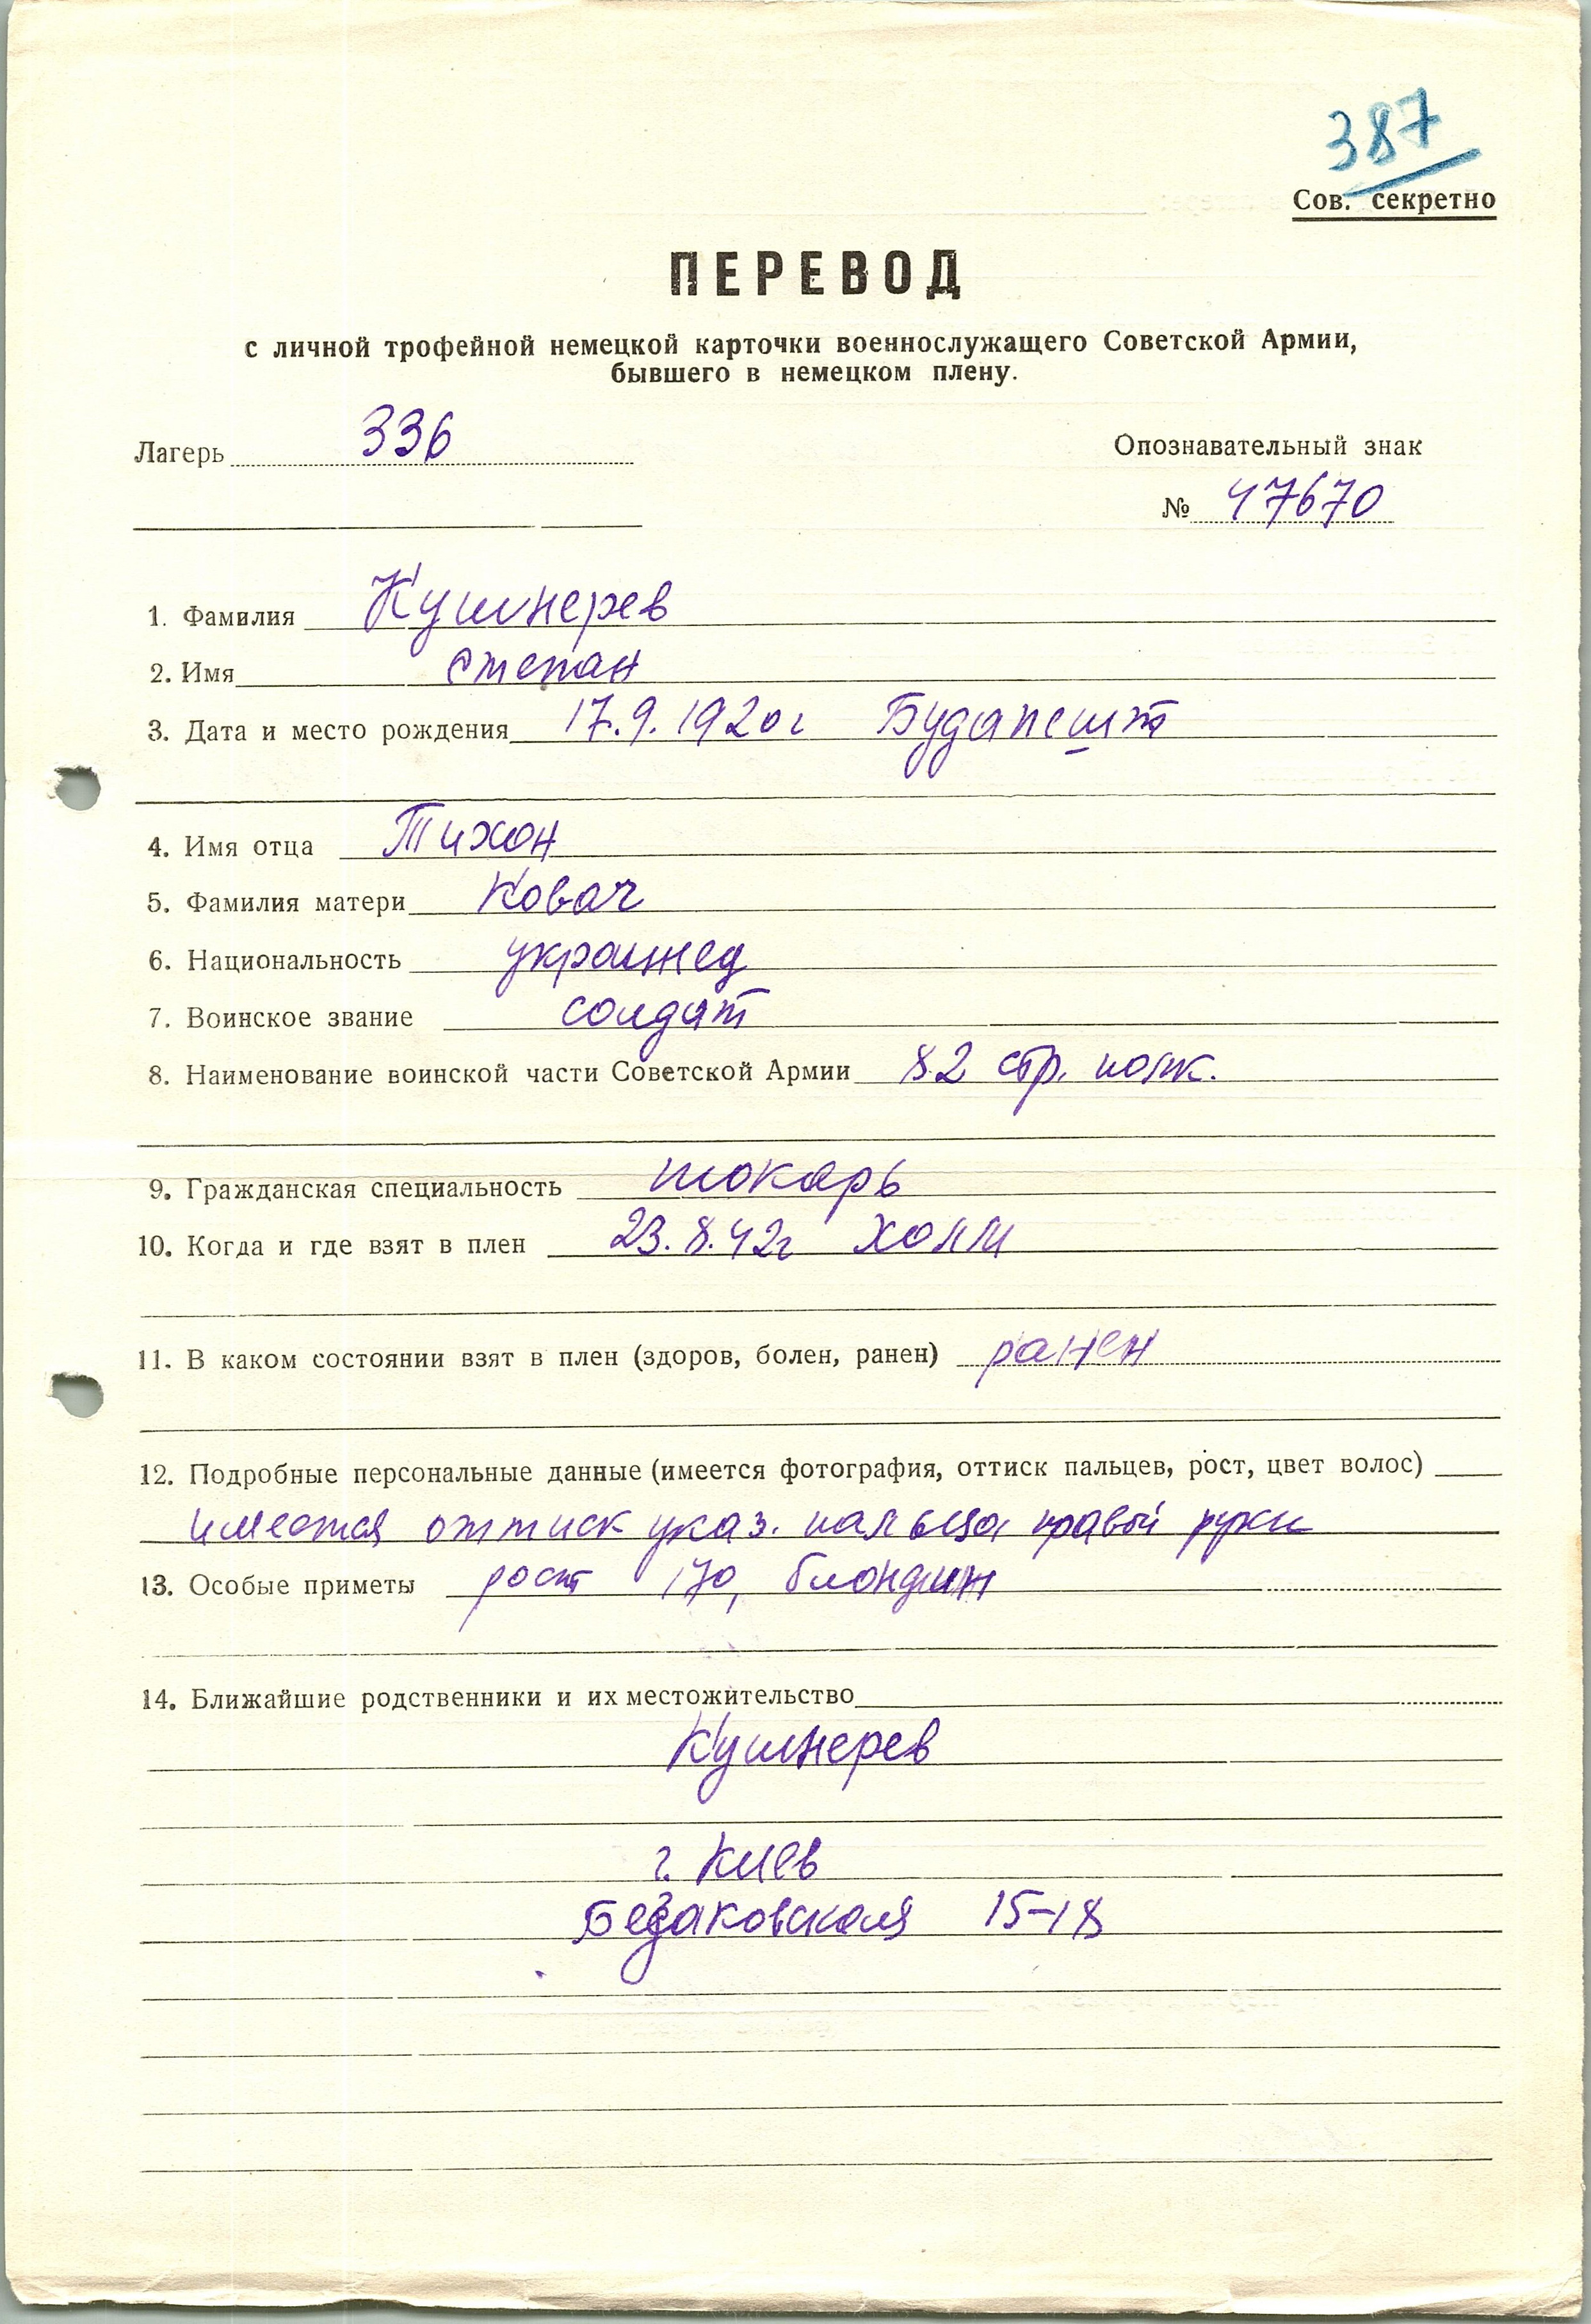 387
Сов. секретно
ПЕРЕВОД
с личной трофейной немецкой карточки военнослужащего Советской Армии,
бывшего в немецком плену.
Лагерь 336 Опознавательный знак
№ 47670
1. Фамилия Кушнерев
2. Имя Степан
3. Дата и место рождения 17.9.1920г Будапешт
4. Имя отца Тихон
5. Фамилия матери Ковач
6. Национальность украинец
7. Воинское звание солдат
8. Наименование воинской части Советской Армии 82 стр. полк.
9. Гражданская специальность токарь
10. Когда и где взят в плен 23.8.42г Холм
11. В каком состоянии взят в плен (здоров, болен, ранен) ранен
12. Подробные персональные данные (имеется фотография, оттиск пальцев, рост, цвет волос)
имеется оттиск указ. пальца правой руки
13. Особые приметы рост 170, блондин
14. Ближайшие родственники и их местожительство
Кушнерев
г. Киев
Безаковская 15-18